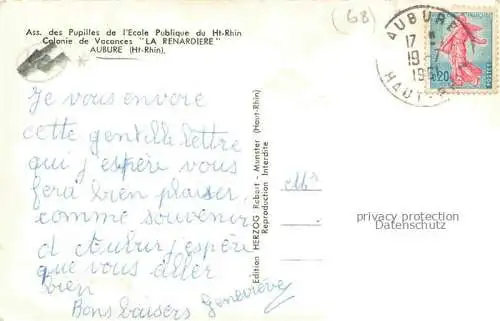 (68)
Ass. des Pupilles de l'Ecole Publique du Ht-Rhin
Colonie de Vacances "LA RENARDIERE"
AUBURE (Ht-Rhin).
AUBURE
17 H
19 -7
19
HAUT-R
0,20
POSTES
Je vous envoie
cette gentille lettre
qui j'espère vous
fera bien plaisir,
comme souvenir
d Aubur j'espère
que vous aller
bien
Bons baisers Geneviève
Edition HERZOG Robert - Munster (Haut-Rhin)
Reproduction Interdite
Mr
privacy protection
Datenschutz